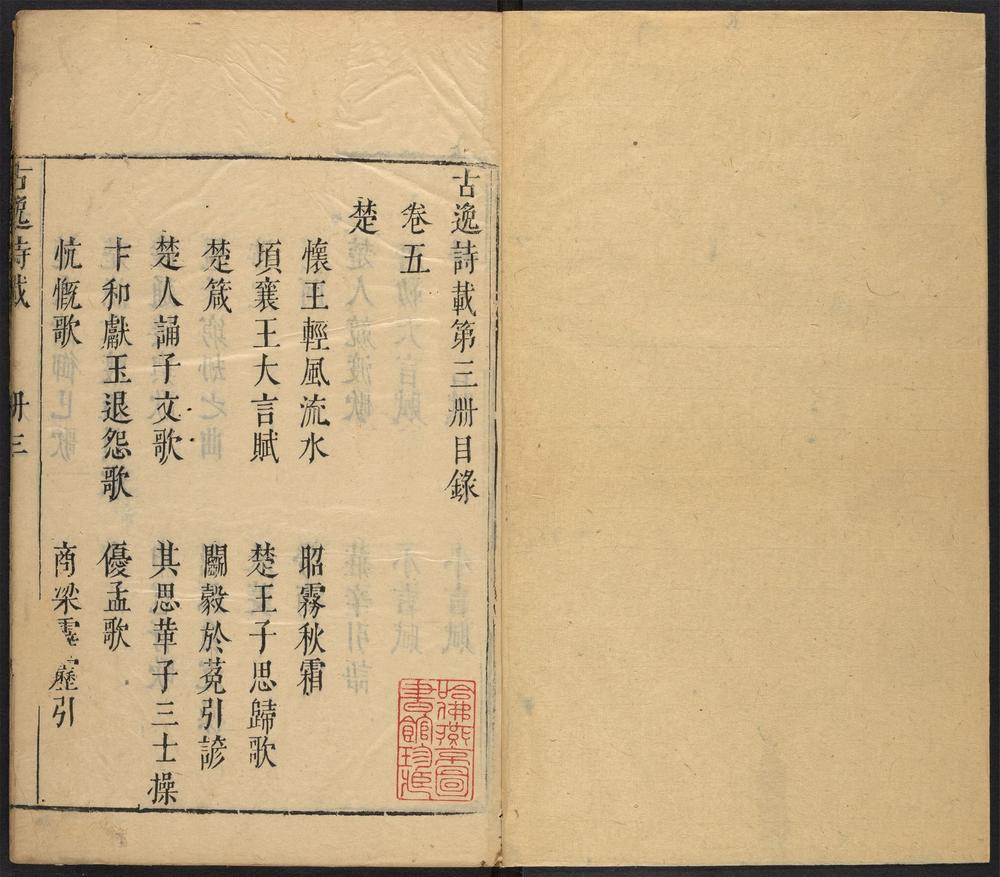 古逸詩載第三册目錄
卷五
楚
懷王輕風流水
昭霧秋霜
頃襄王大言賦
楚王子思歸歌
楚箴
鬭穀於菟引諺
楚人誦子文歌
其思革子三士操
卞和獻玉退怨歌
優孟歌
忼慨歌
商梁霹靂引
古逸詩載
册三
哈佛燕京圖書館珍藏